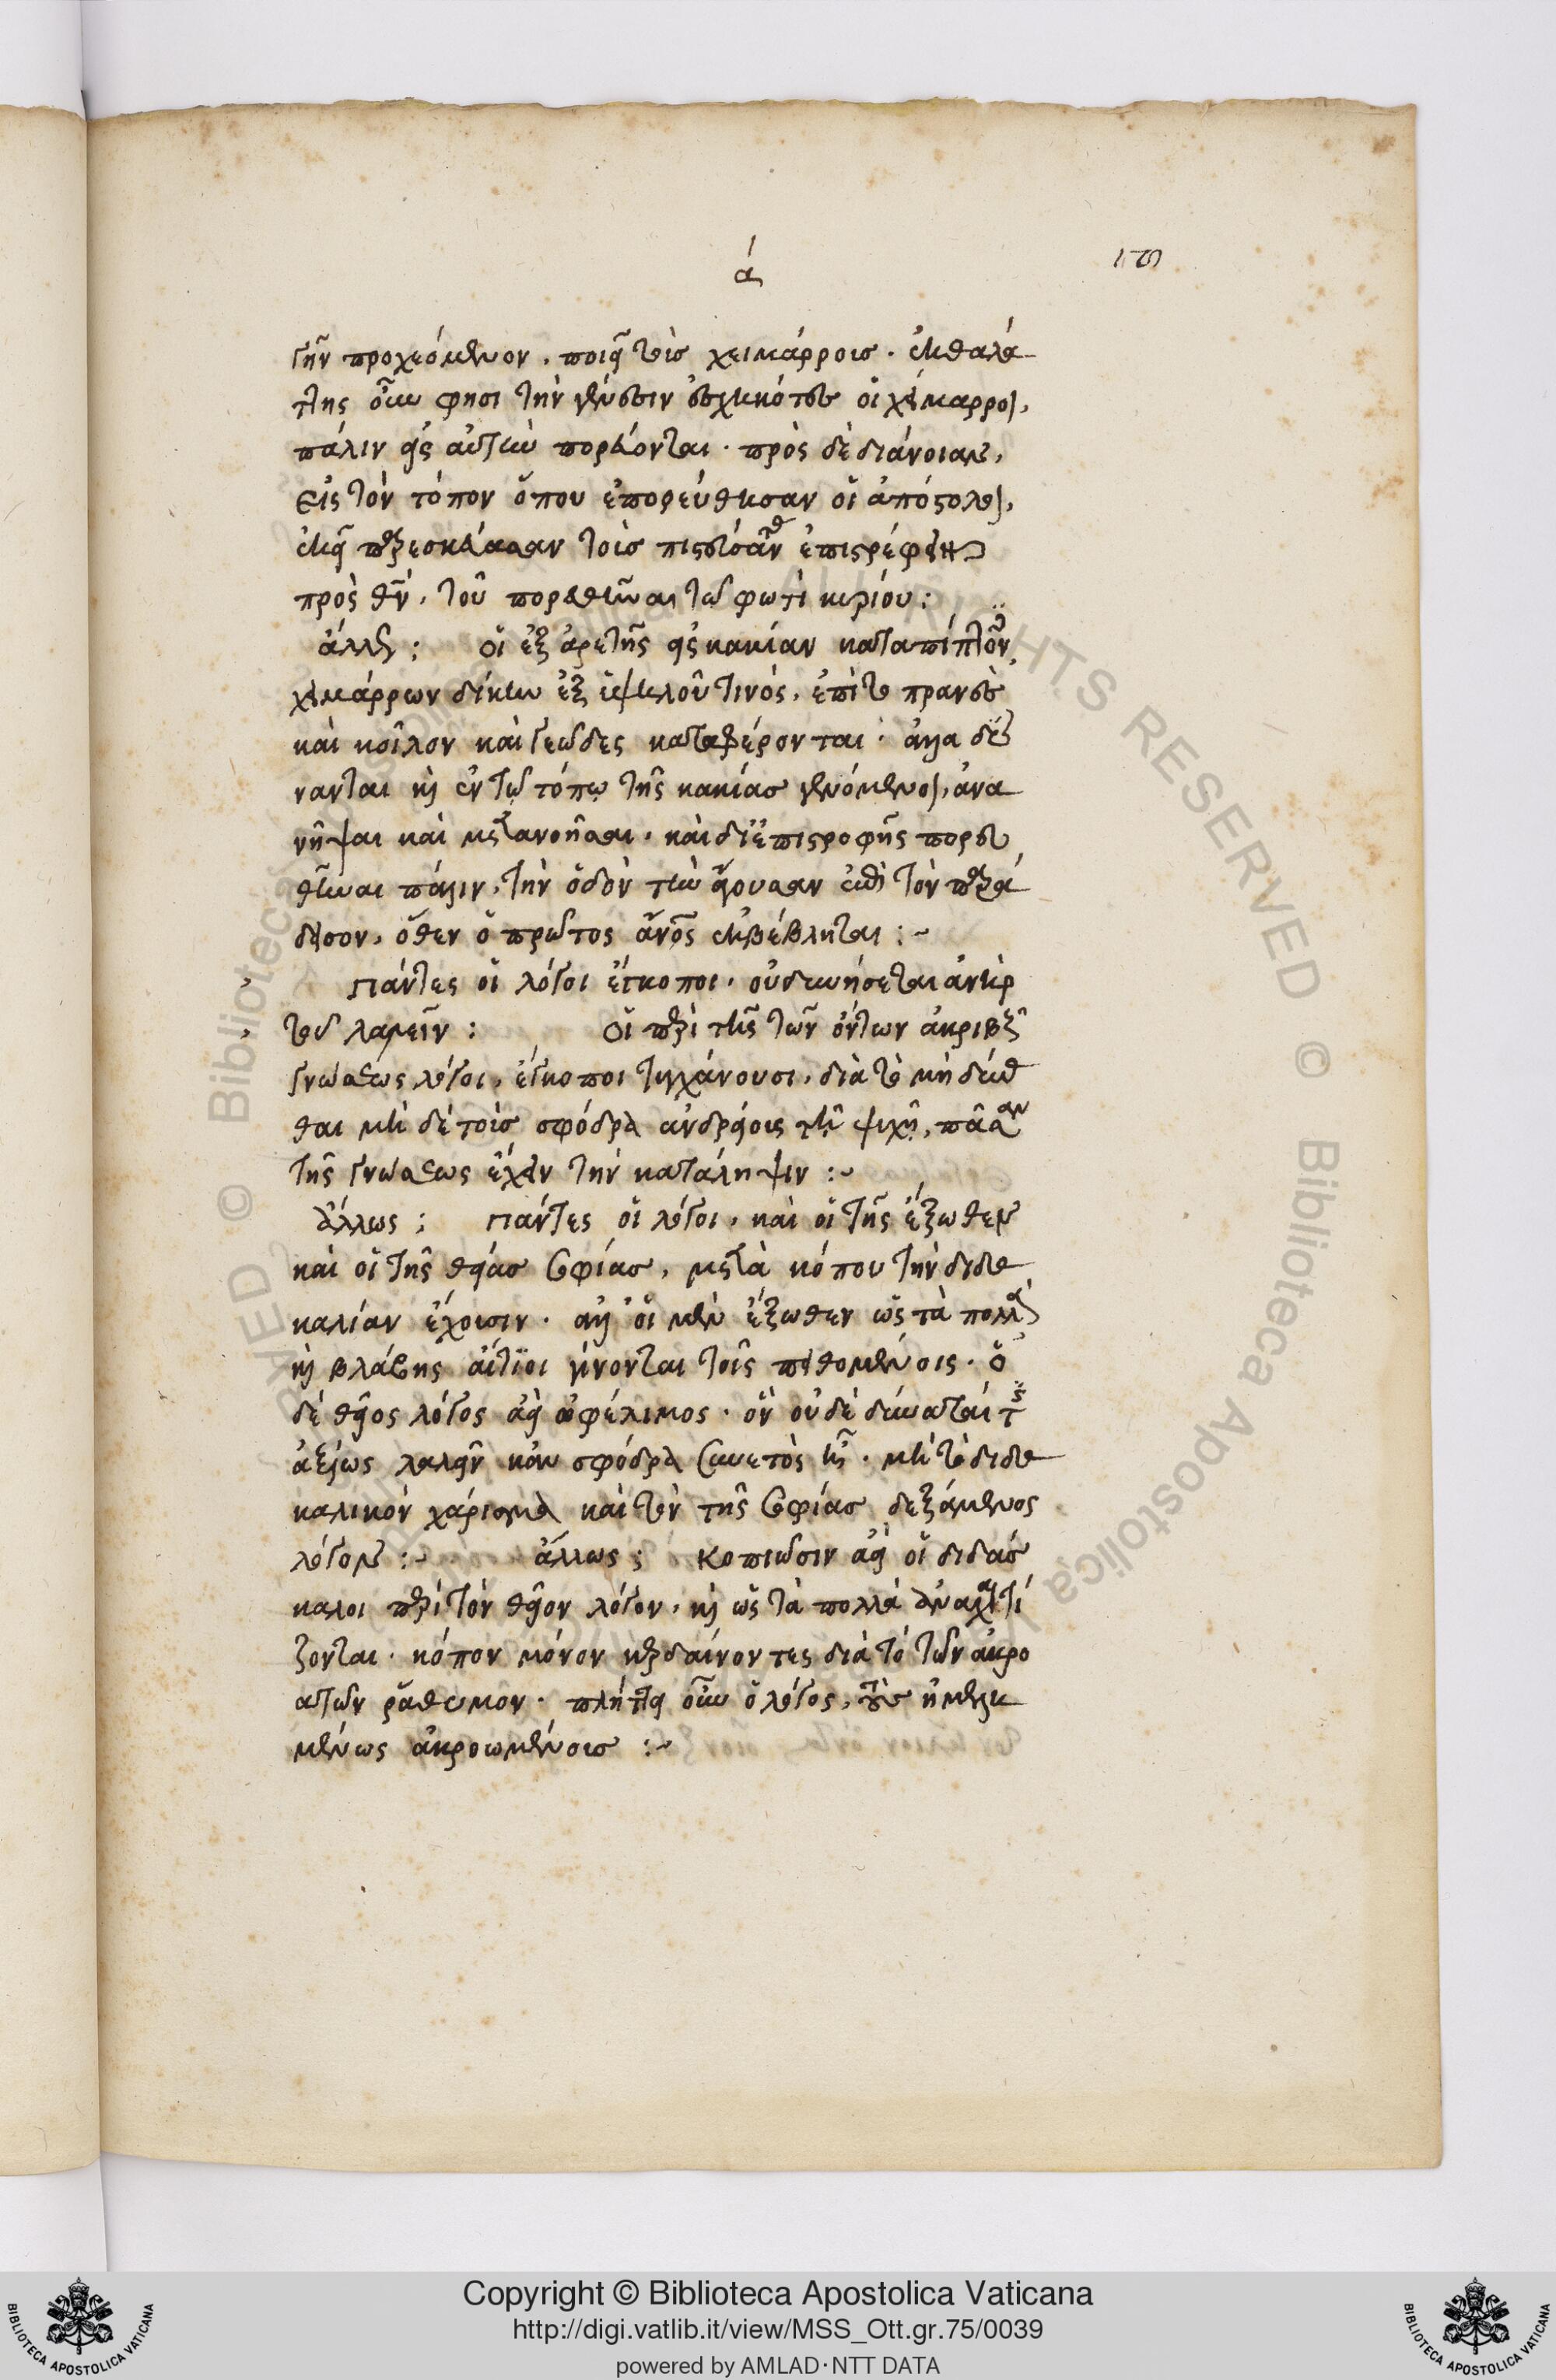 ά
ιϛ
γῆν προχεόμενον. ποιεῖ τοῖς χειμάρροις. ἐκ θαλά
της οὖν φησι τὴν γένεσιν ἐσχηκότες οἱ χείμαρροι,
πάλιν εἰς αὐτὴν πορεύονται. πρὸς δὲ διάνοιαν,
εἰς τὸν τόπον ὅπου ἐπορεύθησαν οἱ ἀπόστολοι,
ἐκεῖ παρεσκεύασαν τοὺς πιστεύσαντας ἐπιστρέφειν
πρὸς θν, τοῦ πορευθῆναι τῶ φωτὶ κυρίου:
ἄλλως: οἱ ἐξ ἀρετῆς εἰς κακίαν καταπίπτοντες,
χειμάρρων δίκην ἐξ ὑψηλοῦ τινὸς, ἐπὶ τὸ πρανὲς
καὶ κοῖλον καὶ γεῶδες καταφέρονται. ἀλλὰ δύ
νανται κὶ ἐν τῷ τόπῳ τῆς κακίας γενόμενοι, ἀνα
νῆψαι καὶ μετανοῆσαι. καὶ δι' ἐπιστροφῆς πορευ
θῆναι πάλιν, τὴν ὁδὸν τὴν ἄγουσαν ἐπὶ τὸν παρά
δεισον, ὅθεν ὁ πρῶτος ἄνος ἐκβέβληται:~
Πάντες οἱ λόγοι ἔγκοποι. οὐ δυνήσεται ἀνὴρ
τοῦ λαλεῖν: Οἱ περὶ τῆς τῶν ὄντων ἀκριβοῦς
γνώσεως λόγοι, ἔγκοποι τυγχάνουσι, διὰ τὸ μὴ δύνασ
θαι μὴ δὲ τοὺς σφόδρα ἀνδρείους τῇ ψυχῇ, πᾶσαν
τῆς γνώσεως ἔχειν τὴν κατάληψιν:~
ἄλλως: Πάντες οἱ λόγοι, καὶ οἱ τῆς ἔξωθεν
καὶ οἱ τῆς θείας σοφίας, μετὰ κόπου τὴν διδασ
καλίαν ἔχουσιν. ἀλλ' οἱ μὲν ἔξωθεν ὡς τὰ πολλὰ
κὶ βλάβης αἴτιοι γίνονται τοῖς πειθομένοις. ὁ
δὲ θεῖος λόγος ἀεὶ ὠφέλιμος. ὃν οὐδὲ δύναταί τις
ἀξίως λαλεῖν κἂν σφόδρα συνετὸς ᾖ. μὴ τὸ διδασ
καλικὸν χάρισμα καὶ τὸν τῆς σοφίας δεξάμενος
λόγον:~ ἄλλως: κοπιῶσιν ἀεὶ οἱ διδάσ
καλοι περὶ τὸν θεῖον λόγον, κὶ ὡς τὰ πολλὰ
ζονται. κόπον μόνον κερδαίνοντες διὰ τὸ τῶν ἀκρο
ατῶν ῥάθυμον. πλήττει οὖν ὁ λόγος, τοὺς ἠμελη
μένως ἀκροωμένους:~
Copyright © Biblioteca Apostolica Vaticana
http://digi.vatlib.it/view/MSS_Ott.gr.75/0039
powered by AMLAD·NTT DATA